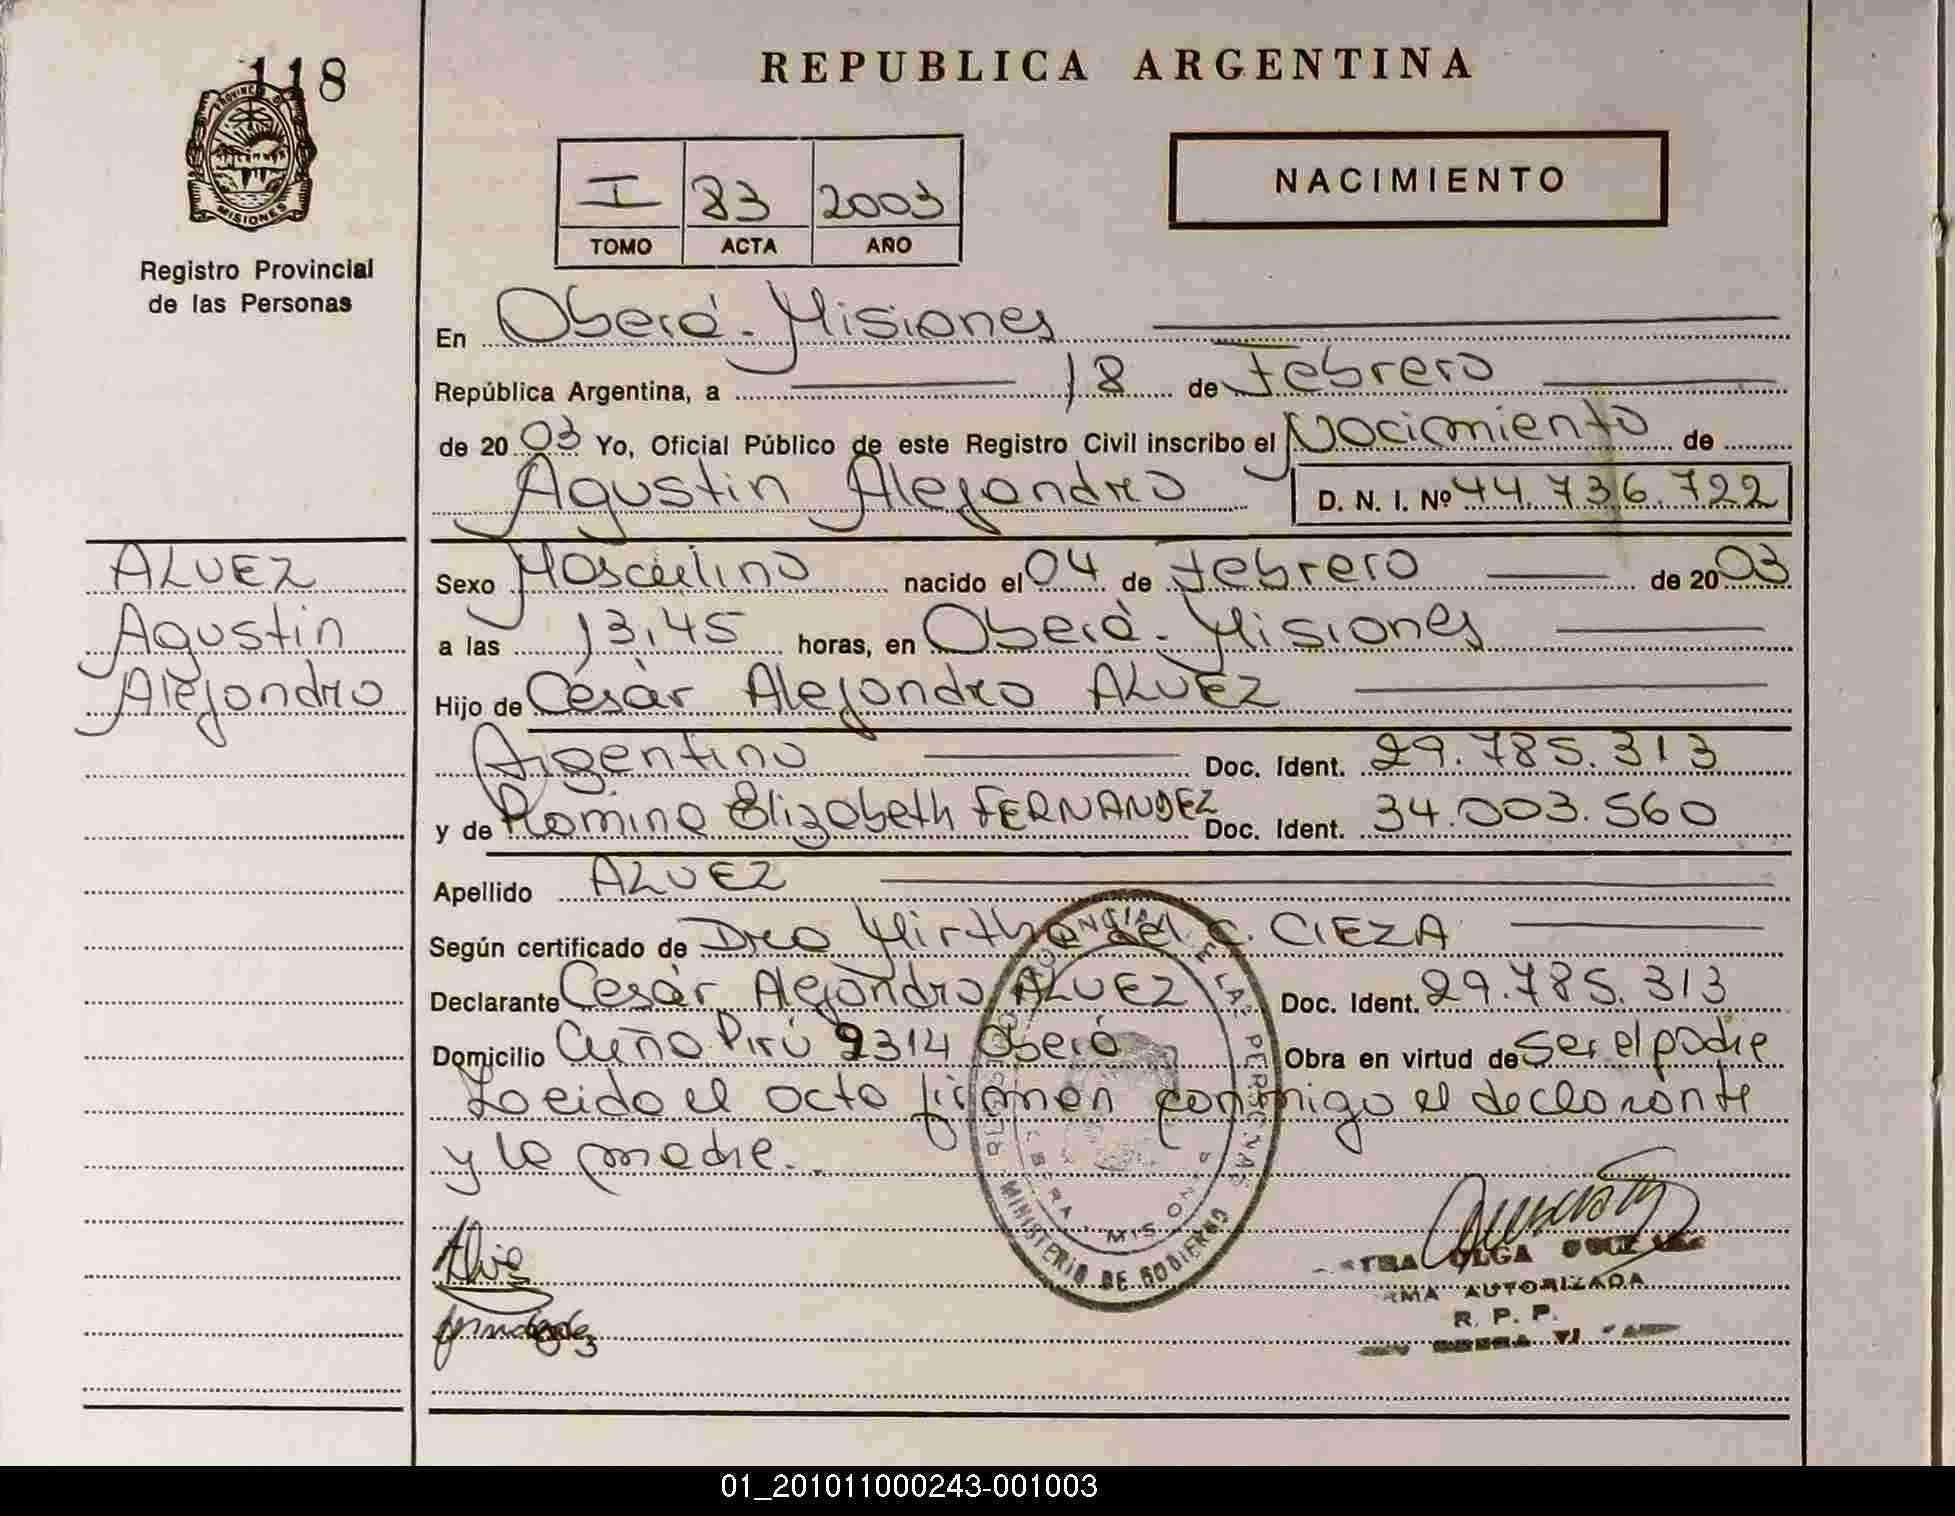 118
PROVINCIA DE
MISIONES
Registro Provincial
de las Personas
REPUBLICA ARGENTINA
I 83 2003
TOMO ACTA AÑO
NACIMIENTO
En Oberá - Misiones
República Argentina, a 18 de Febrero
de 2003 Yo, Oficial Público de este Registro Civil inscribo el Nacimiento de
Agustin Alejandro D. N. I. Nº 44.736.722
ALVEZ
Agustin
Alejandro
Sexo Masculino nacido el 04 de Febrero de 2003
a las 13,45 horas, en Oberá - Misiones
Hijo de César Alejandro ALVEZ
Argentino Doc. Ident. 29.785.313
y de Romina Elizabeth FERNANDEZ Doc. Ident. 34.003.560
Apellido ALVEZ
Según certificado de Dra Mirtha del C. CIEZA
Declarante Cesár Alejandro ALVEZ Doc. Ident. 29.785.313
Domicilio Cuña Pirú 2314 Oberá Obra en virtud de ser el padre
Leida el acta firman conmigo el declarante
y la madre.
MINISTERIO DE GOBIERNO
OLGA
AUTORIZADA
R. P. P.
01_201011000243-001003